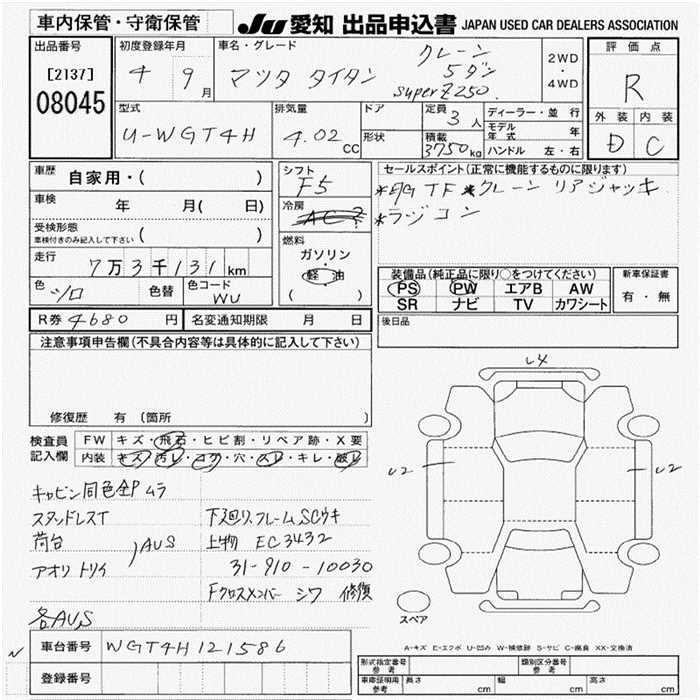 車内保管・守衛保管
JU 愛知 出品申込書 JAPAN USED CAR DEALERS ASSOCIATION
出品番号
[2137]
08045
初度登録年月
4 9月
車名・グレード
マツタ タイタン
クレーン
5ダン
super Z250
2WD
・
4WD
評価点
R
外装 内装
D C
型式
U-WGT4H
排気量
4.02 cc
ドア
形状
定員 3人
積載 3750kg
ディーラー・並行
モデル年式 年
ハンドル 左・右
車歴 自家用・( )
車検 年 月( 日)
受検形態
車検付きのみ記入して下さい ( )
走行
7万3千131km
色 シロ 色替
色コード WU
シフト
F5
冷房
AC?
燃料
ガソリン
・
軽 油
( )
セールスポイント(正常に機能するものに限ります)
TF *クレーン リアジャッキ
*ラジコン
装備品(純正品に限り○をつけてください)
PS PW エアB AW
SR ナビ TV カワシート
新車保証書
有・無
後日品
R券 4680 円 名変通知期限 月 日
注意事項申告欄(不具合内容等は具体的に記入して下さい)
修復歴 有 (箇所 )
検査員記入欄
FW キズ・飛石・ヒビ割・リペア跡・X要
内装 キズ・汚レ・コゲ・穴・スレ・キレ・破レ
キャビン同色全P ムラ
スタッドレスT
荷台
アオリ トリイ
)AUS
各AUS
下廻リ、フレームSCウキ
上物 EC3432
31-910-10030
Fクロスメンバー シワ 修復
U4
U2
U2
スペア
A-キズ E-エクボ U-凹み W-補修跡 S-サビ C-腐食 XX-交換済
車台番号 WGT4H121586
登録番号
型式指定番号 参考
類別区分番号 参考
車庫証明用 参考 長さ cm 幅 cm 高さ cm